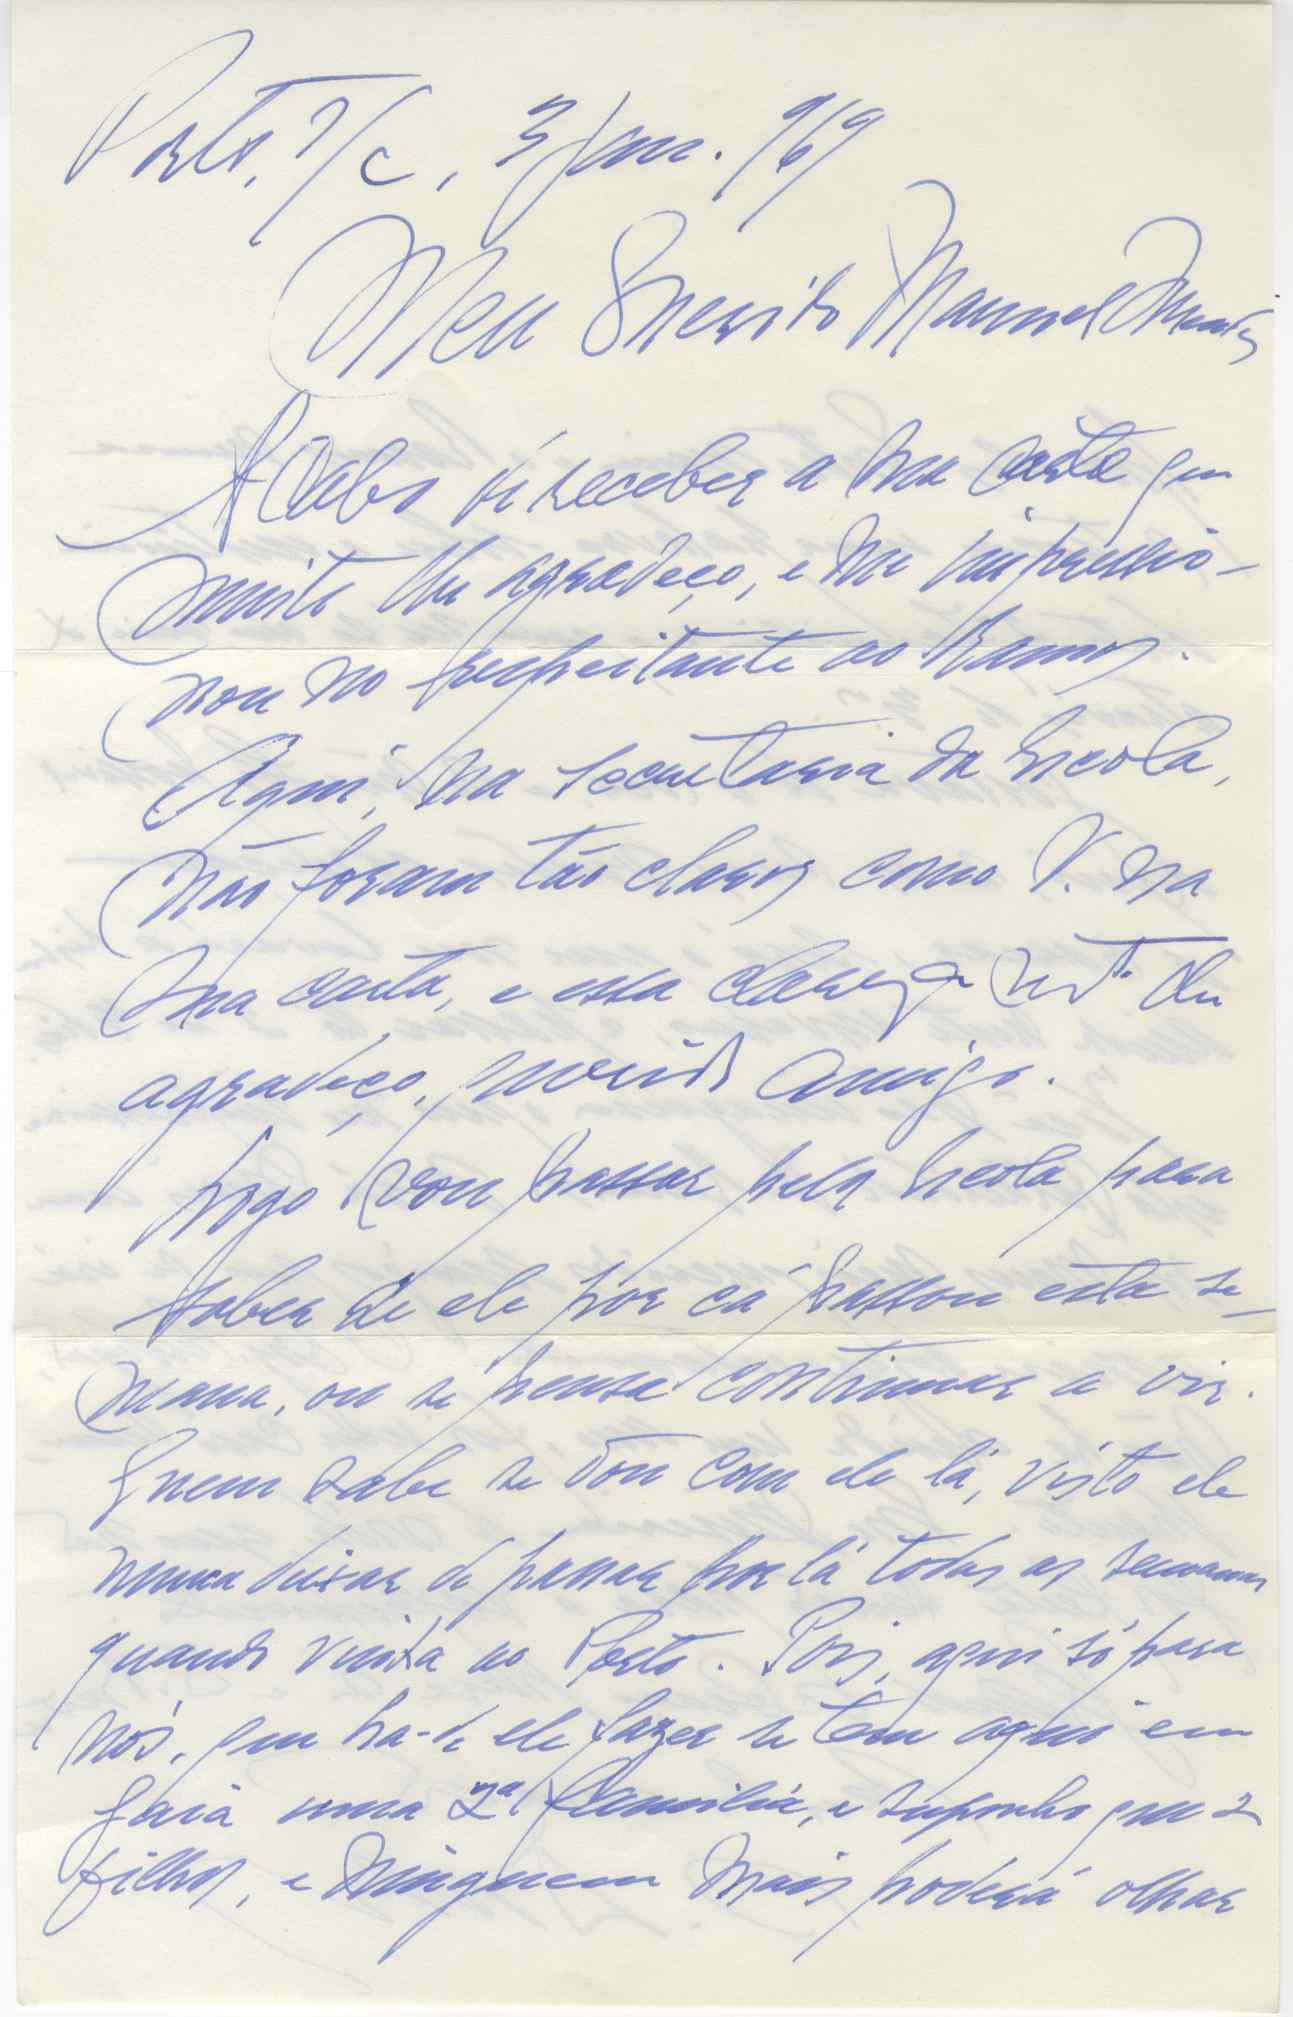 Porto, s/c, 3 Jan. 969
Meu Querido Manuel Mendes
Acabo de receber a sua carta que
muito lhe agradeço, e me impressio-
nou no respeitante ao Ramos.
Aqui, na secretaria da Escola,
não foram tão claros como V. na
sua carta, e essa clareza lhe
agradeço, querido amigo.
Logo vou passar pela Escola para
saber se ele por cá passou esta se-
mana, ou se pensa continuar a vir.
Quem sabe se dou com ele lá, visto ele
nunca deixar de passar por lá todas as semanas
quando vinha ao Porto. Pois, aqui só para
nós, que ha-de ele fazer se tem aqui em
Gaia uma 2ª família, e suponho que 2
filhos, e ninguem mais poderá olhar